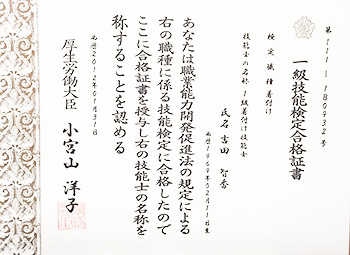 第111-1B0932号
一級技能検定合格証書
検定職種 着付け
技能士の名称 1級着付け技能士
氏名 吉田 智香
西暦1969年02月11日生
あなたは職業能力開発促進法の規定による
右の職種に係る技能検定に合格したので
ここに合格証書を授与し右の技能士の名称を
称することを認める
西暦2012年01月31日
厚生労働大臣 小宮山 洋子